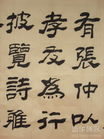 有張仲以
孝友為行
披覽詩雅